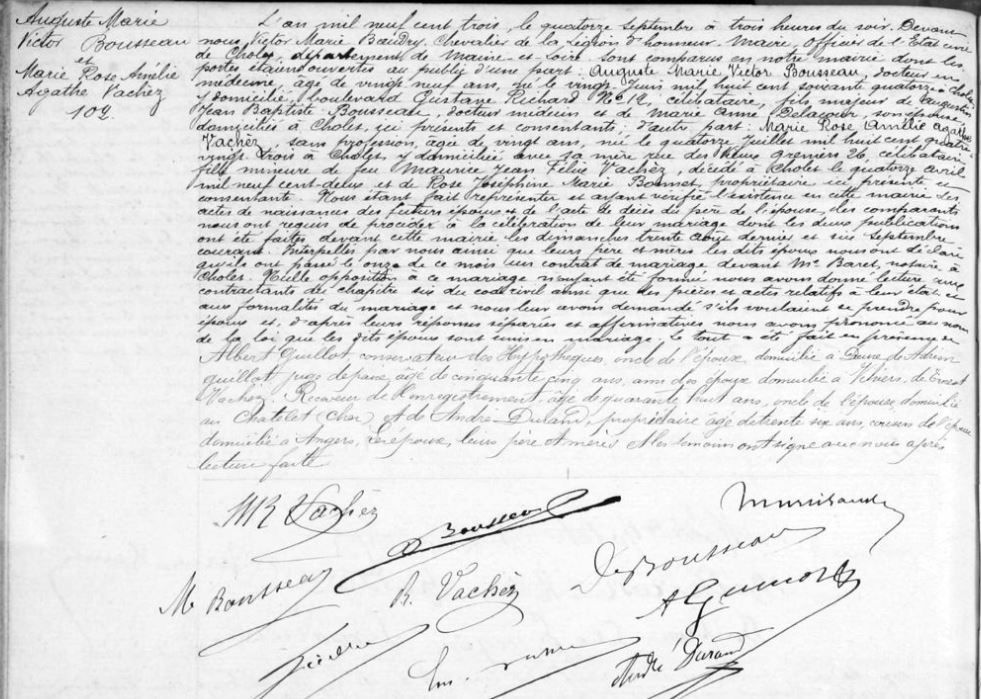 Auguste Marie
Victor Bousseau
et
Marie Rose Amélie
Agathe Vachez
102
L'an mil neuf cent trois, le quatorze septembre à trois heures du soir. Devant
nous, Victor Marie Baudry, Chevalier de la Légion d'honneur, Maire, officier de l'Etat civil
de Cholet, département de Maine-et-Loire, sont comparus en notre mairie dont les
portes étaient ouvertes au public d'une part: Auguste Marie Victor Bousseau, docteur en
médecine, âgé de vingt neuf ans, né le vingt Juin mil huit cent soixante quatorze à Cholet,
y domicilié, boulevard Gustave Richard No 12, célibataire, fils majeur de Augustin
Jean Baptiste Bousseau, docteur médecin et de Marie Anne Delacour, son épouse,
domiciliés à Cholet, ici présents et consentants, d'autre part: Marie Rose Amélie Agathe
Vachez, sans profession, âgée de vingt ans, née le quatorze Juillet mil huit cent quatre
vingt trois à Cholet, y domiciliée avec sa mère rue des Vieux greniers 26, célibataire
fille mineure de feu Maurice Jean Félix Vachez, décédé à Cholet le quatorze avril
mil neuf cent-deux et de Rose Joséphine Marie Bonnet, propriétaire ici présente et
consentante. Nous étant fait représenter et ayant vérifié l'existence en cette mairie des
actes de naissances des futurs époux et de l'acte de décès du père de l'épouse, les comparants
nous ont requis de procéder à la célébration de leur mariage dont les deux publications
ont été faites devant cette mairie les dimanches trente août dernier et six septembre
courant. Interpellés par nous ainsi que leurs père et mères les dits époux nous ont déclaré
qu'ils ont passé le onze de ce mois un contrat de mariage devant Me Baret, notaire à
Cholet. Nulle opposition à ce mariage n'ayant été formée nous avons donné lecture aux
contractants du chapitre six du code civil ainsi que des pièces et actes relatifs à leur état et
aux formalités du mariage et nous leur avons demandé s'ils voulaient se prendre pour
époux et, d'après leurs réponses séparées et affirmatives nous avons prononcé au nom
de la loi que les dits époux sont unis en mariage. Le tout a été fait en présence de
Albert Guillot, conservateur des Hypothèques, oncle de l'époux domicilié à de Adrien
Guillot, juge de paix, âgé de cinquante cinq ans, ami des époux domicilié à Vihiers, de Ernest
Vachez, Receveur de l'enregistrement, âgé de quarante huit ans, oncle de l'épouse domicilié
au Chatelet (Cher) et de André Durand, propriétaire âgé de trente six ans, cousin de l'épouse
domicilié à Angers, Les époux, leurs père et mères et les témoins ont signé avec nous après
lecture faite
MR Vachez
Bousseau
M Bousseau
R. Vachez
Bousseau
André Durand